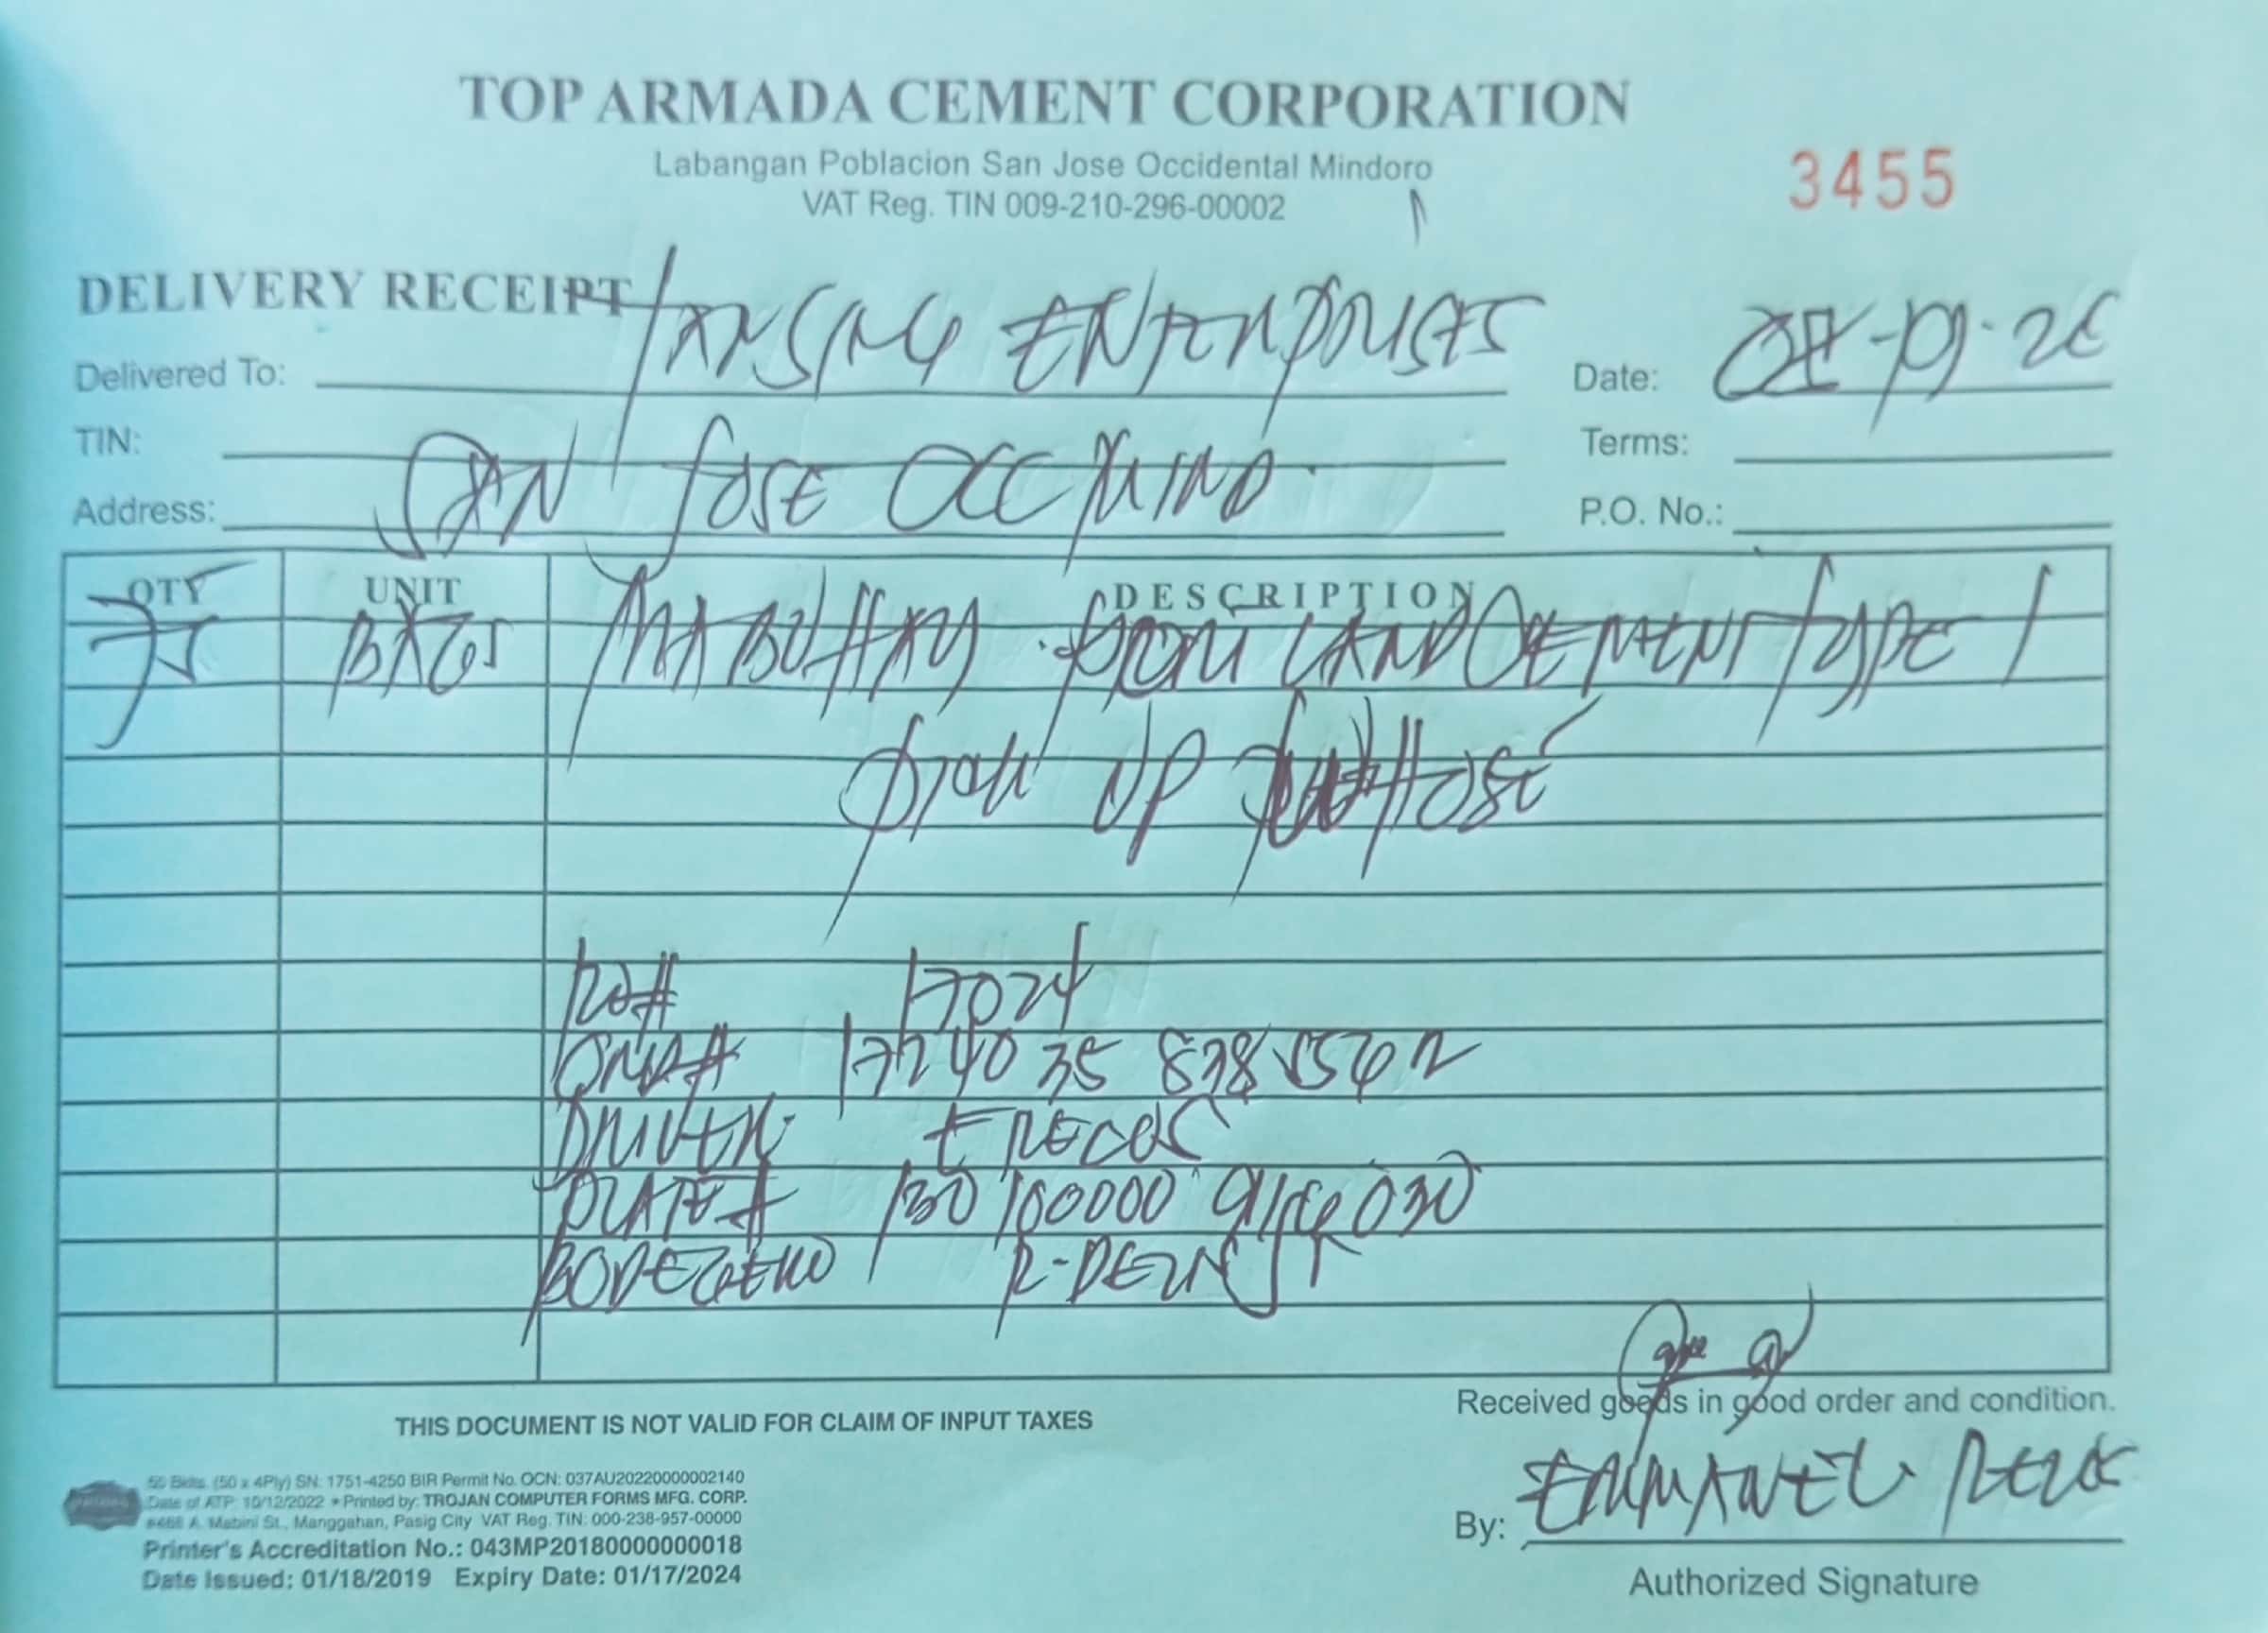 TOP ARMADA CEMENT CORPORATION
Labangan Poblacion San Jose Occidental Mindoro
VAT Reg. TIN 009-210-296-00002
3455
DELIVERY RECEIPT
Delivered To: TANSING ENTERPRISES
Date:
TIN:
Terms:
Address: SAN JOSE OCC MIND.
P.O. No.:
QTY UNIT DESCRIPTION
75 BAGS MABUHAY PORTLAND CEMENT TYPE 1
PICK UP
17024
DRIVER
PLATE #
BODEGERO
THIS DOCUMENT IS NOT VALID FOR CLAIM OF INPUT TAXES
Received goods in good order and condition.
50 Bkts. (50 x 4Ply) SN: 1751-4250 BIR Permit No. OCN: 037AU20220000002140
Date of ATP: 10/12/2022 • Printed by: TROJAN COMPUTER FORMS MFG. CORP.
A. Mabini St., Manggahan, Pasig City VAT Reg. TIN: 000-238-957-00000
Printer's Accreditation No.: 043MP20180000000018
Date Issued: 01/18/2019 Expiry Date: 01/17/2024
By: EMMANUEL
Authorized Signature